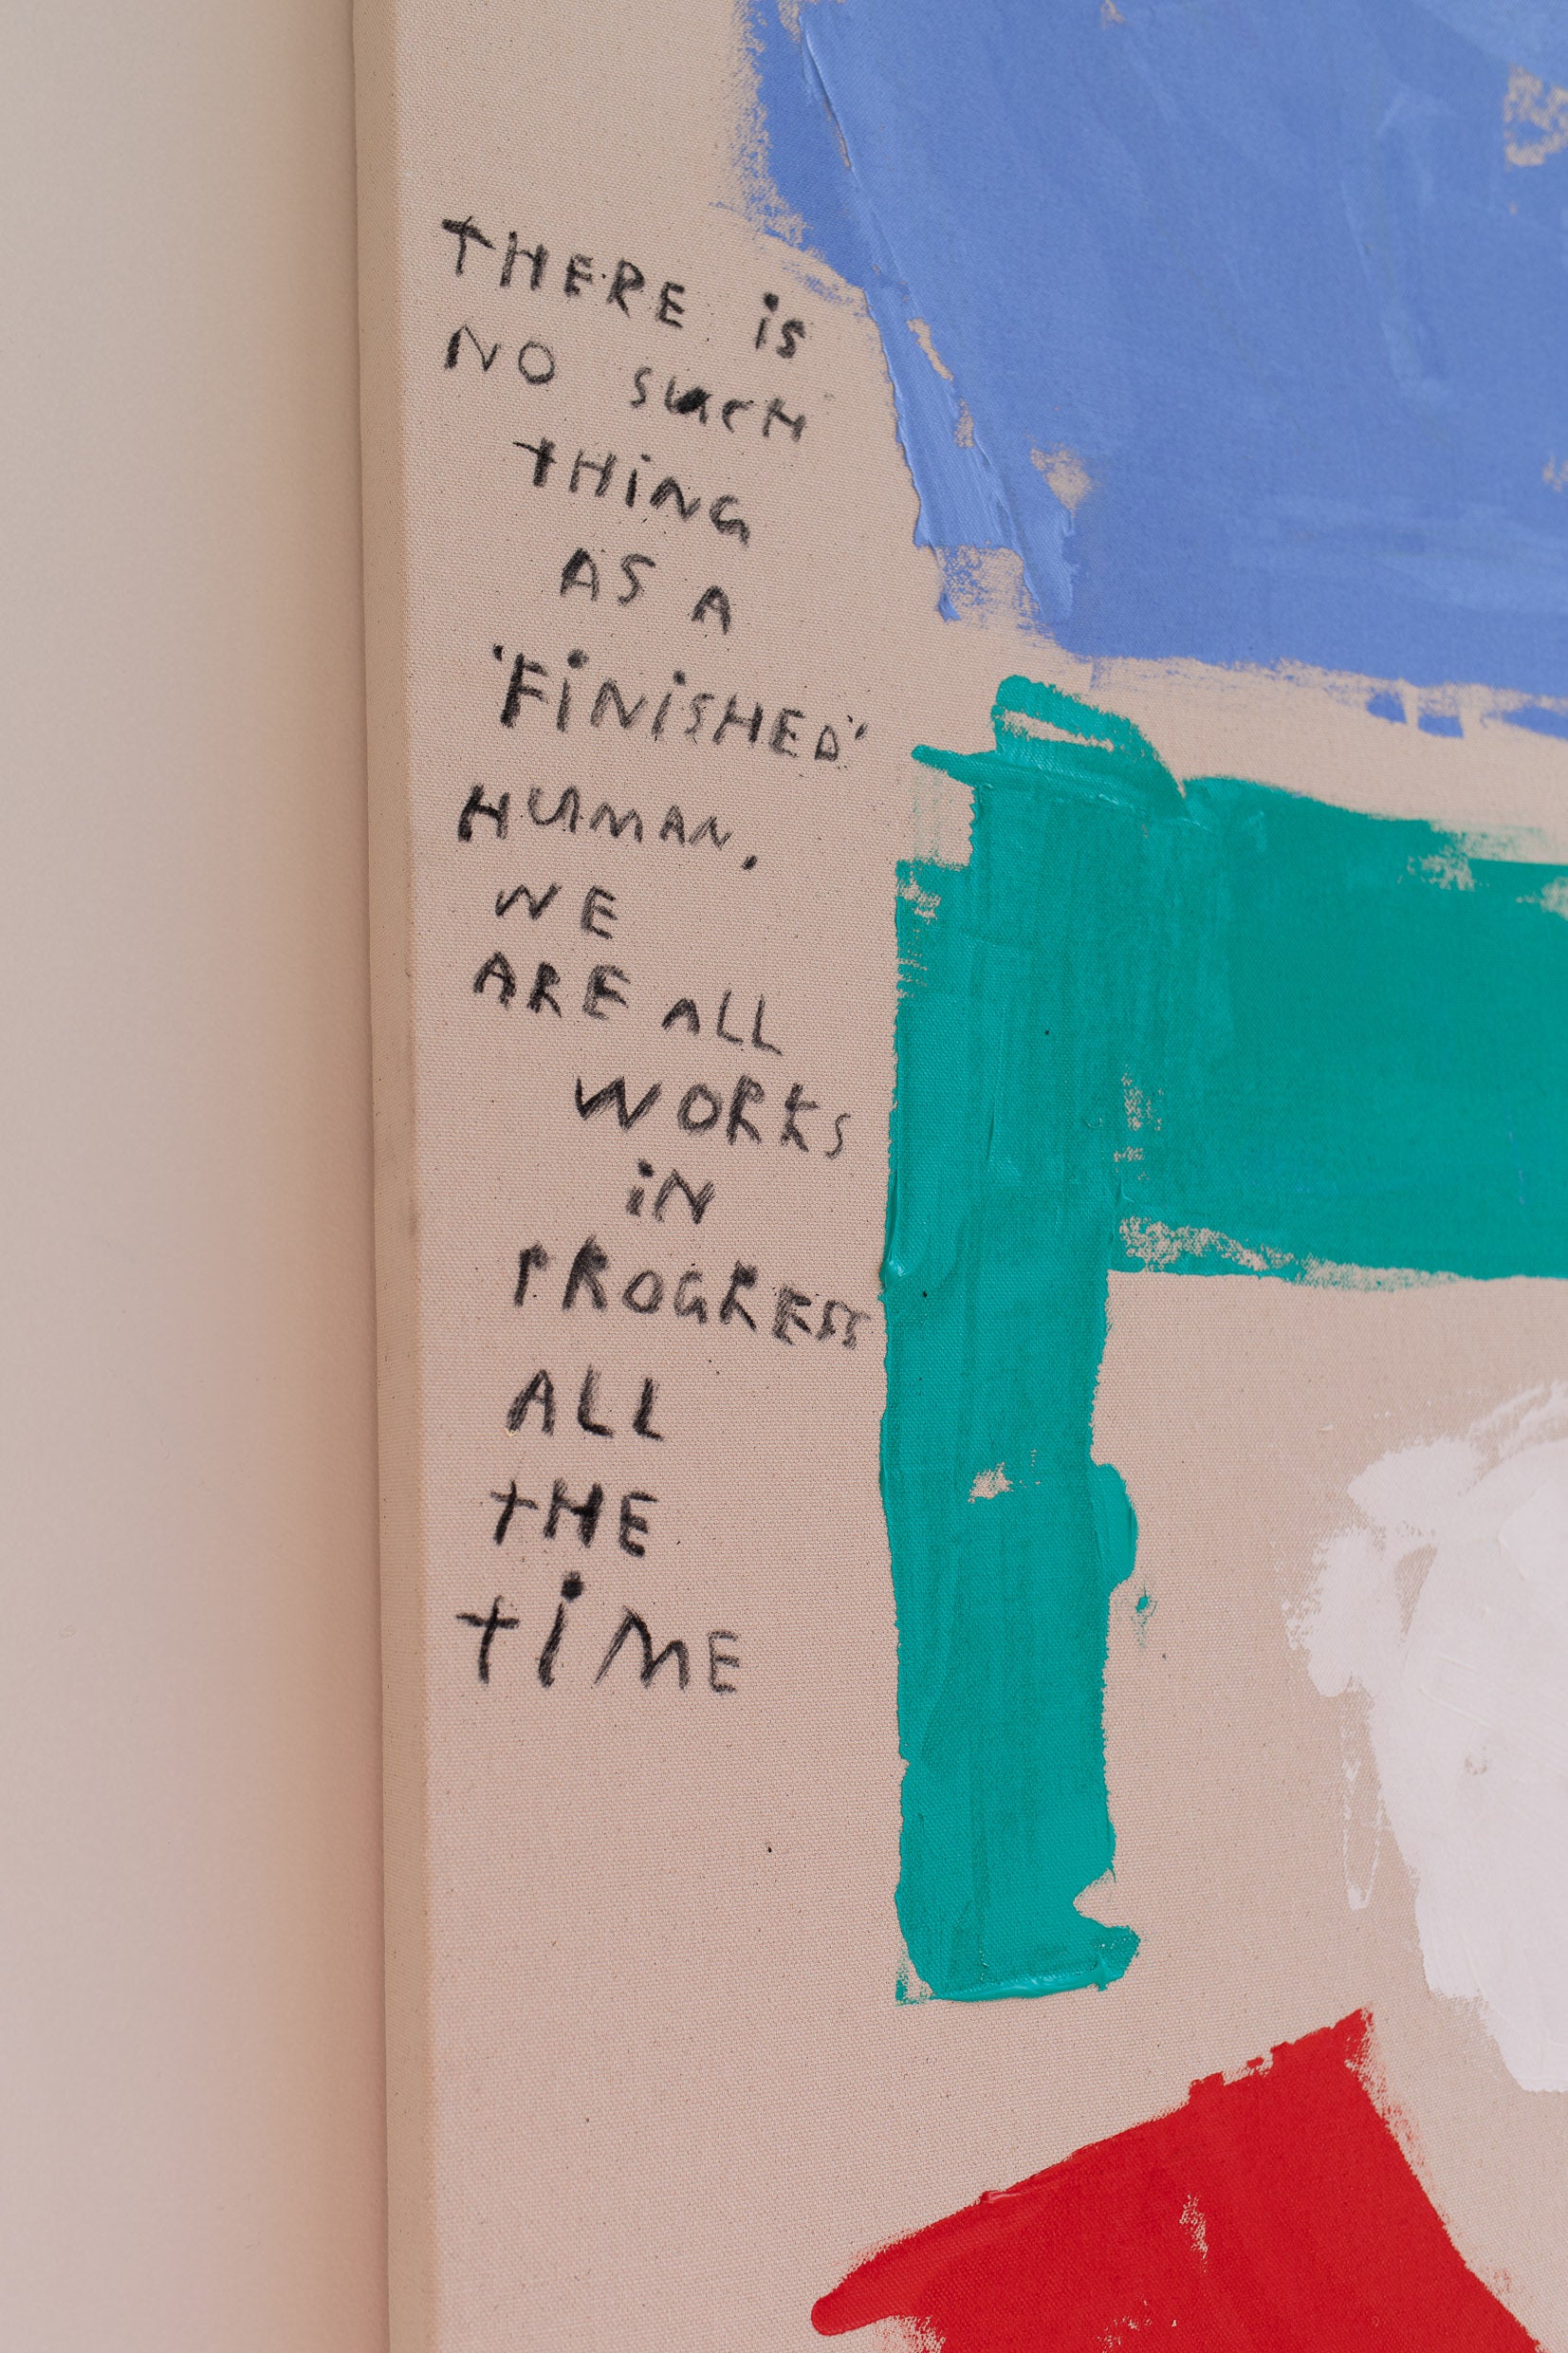 THERE iS
NO SUCH
THiNG
AS A
'FiNiSHED'
HUMAN.
WE
ARE ALL
WORKS
iN
PROGRESS
ALL
THE
TiME